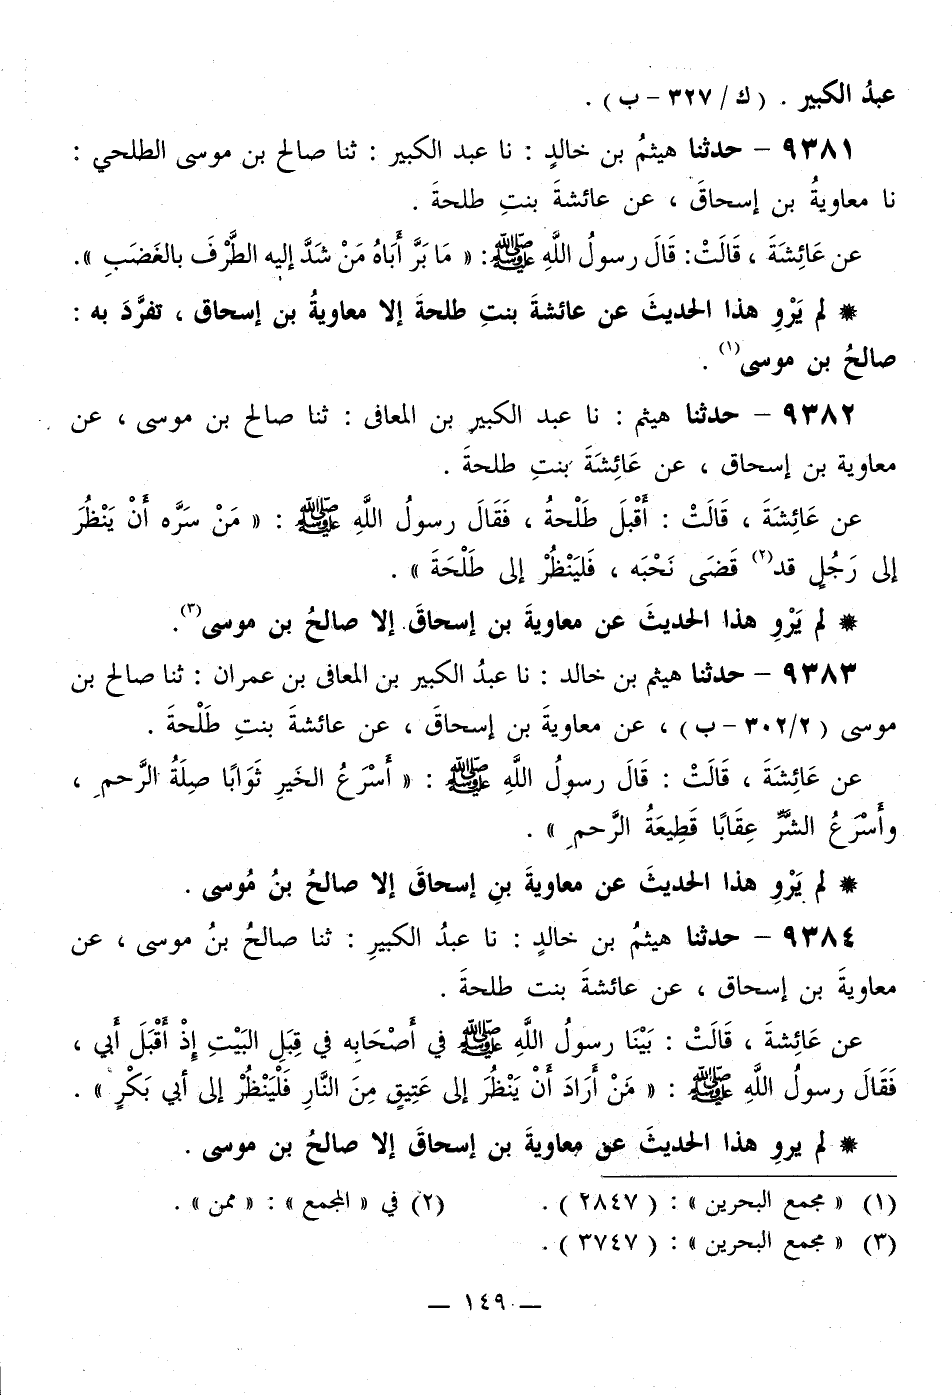 عبدُ الكبير . ( ك / ٣٢٧ – ب ) .
٩٣٨١ – حدثنا هيثمُ بن خالدٍ : نا عبد الكبير : ثنا صالح بن موسى الطلحي :
نا معاويةُ بن إسحاقَ ، عن عائشةَ بنتِ طلحةَ .
عن عَائِشَةَ ، قَالَتْ: قَالَ رسولُ اللَّهِ ﷺ: « مَا بَرَّ أَبَاهُ مَنْ شَدَّ إليه الطَّرْفَ بالغَضَبِ ».
* لم يَرْوِ هذا الحديثَ عن عائشةَ بنتِ طلحةَ إلا معاويةُ بن إسحاق ، تفرَّدَ به :
صالحُ بن موسى(١) .
٩٣٨٢ – حدثنا هيثم : نا عبد الكبيرِ بن المعافى : ثنا صالح بن موسى ، عن
معاوية بن إسحاق ، عن عَائِشَةَ بنتِ طلحةَ .
عن عَائِشَةَ ، قَالَتْ : أَقْبَلَ طَلْحةُ ، فَقَالَ رسولُ اللَّهِ ﷺ : « مَنْ سَرَّه أَنْ يَنْظُرَ
إلى رَجُلٍ قد(٢) قَضَى نَحْبَه ، فَليَنْظُرْ إلى طَلْحَةَ » .
* لم يَرْوِ هذا الحديثَ عن معاويةَ بن إسحاقَ إلا صالحُ بن موسى(٣).
٩٣٨٣ – حدثنا هيثم بن خالد : نا عبدُ الكبير بن المعافى بن عمران : ثنا صالح بن
موسى ( ٣٠٢/٢ – ب ) ، عن معاويةَ بن إسحاقَ ، عن عائشةَ بنتِ طَلْحةَ .
عن عَائِشَةَ ، قَالَتْ : قَالَ رسولُ اللَّهِ ﷺ : « أَسْرَعُ الخَيرِ ثَوَابًا صِلَةُ الرَّحمِ ،
وأَسْرَعُ الشَّرِّ عِقَابًا قَطِيعَةُ الرَّحمِ » .
* لم يَرْوِ هذا الحديثَ عن معاويةَ بنِ إسحاقَ إلا صالحُ بنُ مُوسى .
٩٣٨٤ – حدثنا هيثمُ بن خالدٍ : نا عبدُ الكبيرِ : ثنا صالحُ بنُ موسى ، عن
معاويةَ بن إسحاق ، عن عائشةَ بنت طلحةَ .
عن عَائِشةَ ، قَالَتْ : بَيْنَا رسولُ اللَّهِ ﷺ في أَصْحَابِه في قِبَلِ البَيْتِ إِذْ أَقْبَلَ أَبي ،
فَقَالَ رسولُ اللَّهِ ﷺ : « مَنْ أَرَادَ أَنْ يَنْظُرَ إلى عَتِيقٍ مِنَ النَّارِ فَلْيَنْظُرْ إلى أبي بَكْرٍ » .
* لم يروِ هذا الحديثَ عن معاويةَ بن إسحاقَ إلا صالحُ بن موسى .
(١) « مجمع البحرين » : ( ٢٨٤٧ ) . (٢) في « المجمع » : « ممن » .
(٣) « مجمع البحرين » : ( ٣٧٤٧ ) .
— ١٤٩ —